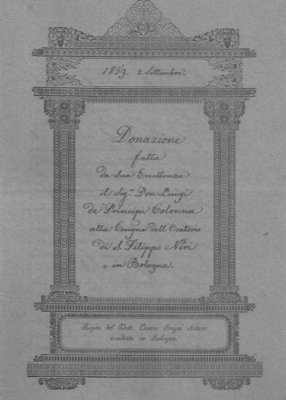 1859. 2 Settembre.
Donazione
fatta
da Sua Eccellenza
il Sig.r Don Luigi
de' Principi Colonna
alla Congne dell' Oratorio
di S. Filippo Neri
in Bologna.
Rogito del Dott. Cesare Notaro
residente in Bologna